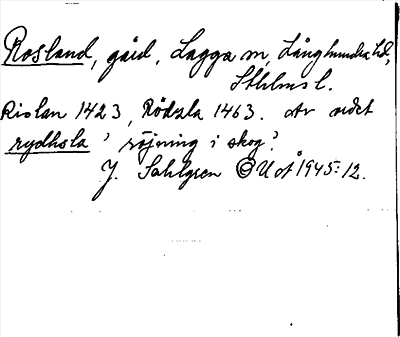 Rosland, gård, Lagga sn, Långhundra hd,
Sthlms l.
Rislan 1423, Rödzla 1463. Av ordet
rydhsla 'röjning i skog'?
J. Sahlgren OUÅ 1945:12.